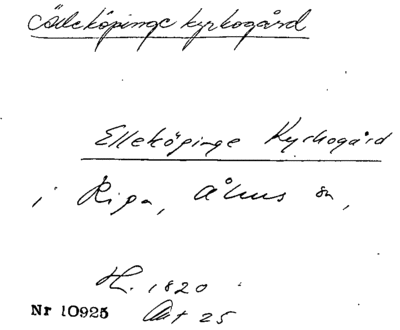 Ödeköpinge kyrkogård
Elleköpinge Kyrkogård
i Ripa, Åhus sn,
H. 1820
Nr 10925 Akt 25